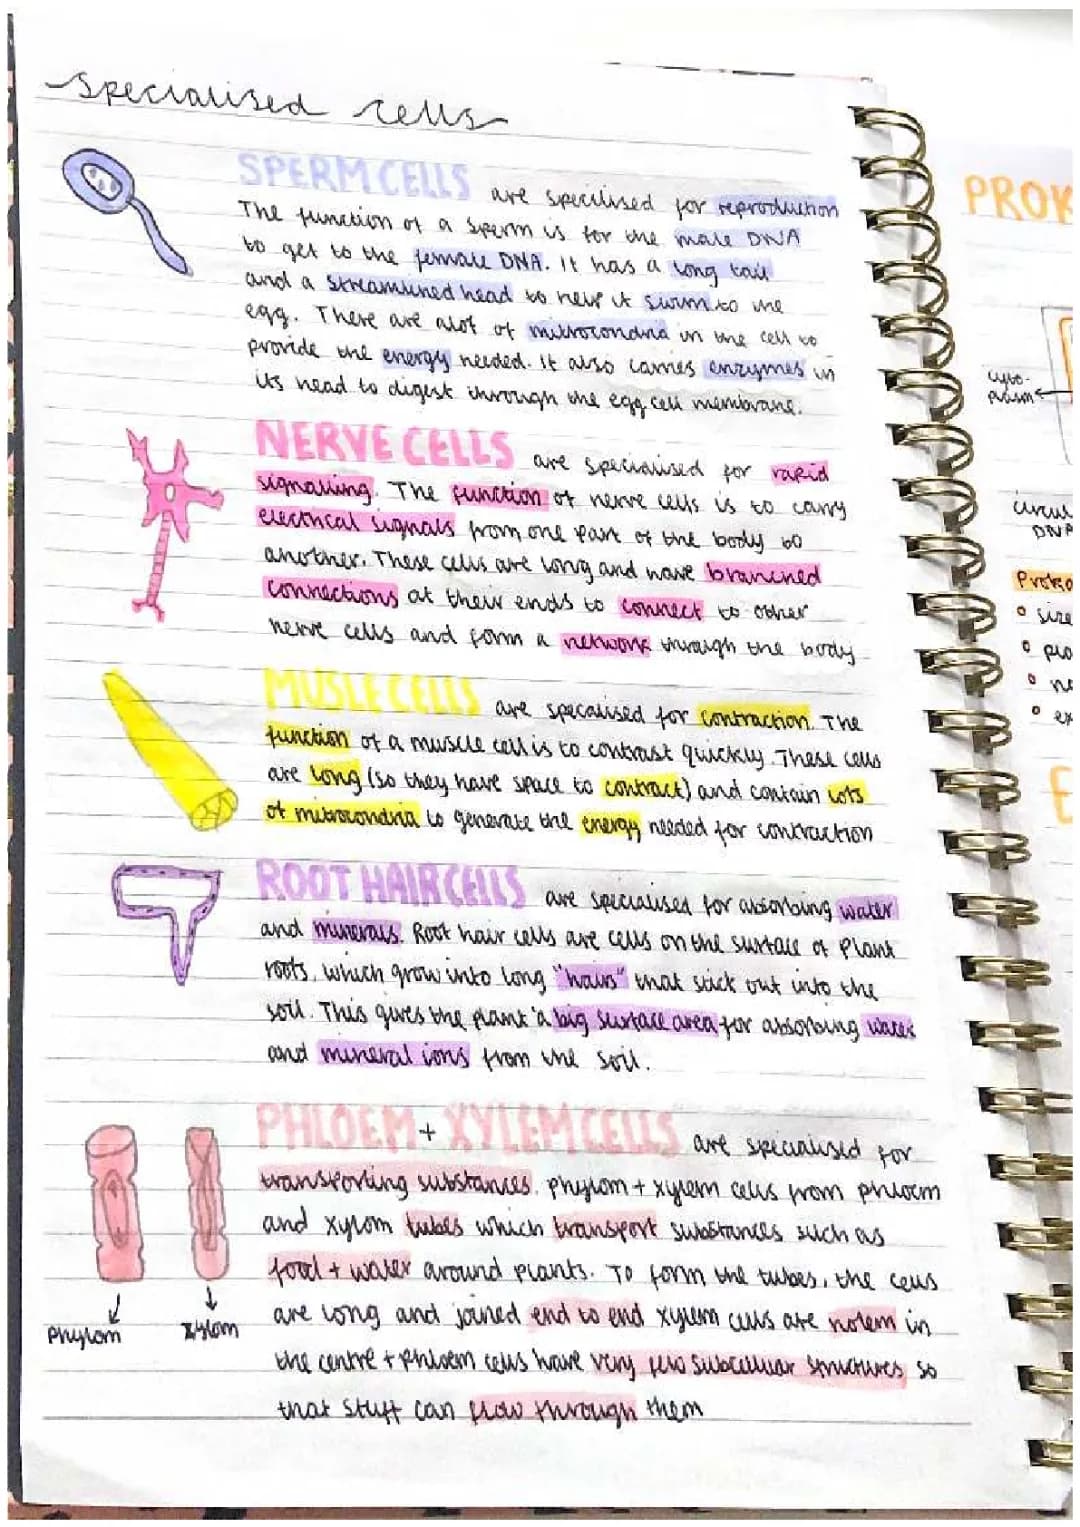 specialised cells
SPERM CELLS are specilised for reproduction
The function of a sperm is for the male DNA
to get to the female DNA. It has a long tail
and a streamlined head to help it swim to the
egg. There are alot of mitrocondria in the cell to
provide the energy needed. It also carries enzymes in
its head to digest through the egg cell membrane.
NERVE CELLS are specialised for rapid
signalling. The function of nerve cells is to carry
electrical signals from one part of the body to
another. These cells are long and have branched
connections at their ends to connect to other
nerve cells and form a network through the body
MUSLE CELLS are specalised for contraction. The
function of a muscle cell is to contrast quickly. These cells
are long (so they have space to contract) and contain lots
of mitrocondria to generate the energy needed for contraction
ROOT HAIR CELLS are specialised for absorbing water
and minerals. Root hair cells are cells on the surface of plant
roots, which grow into long "hairs" that stick out into the
soil. This gives the plant a big surface area for absorbing water
and mineral ions from the soil.
PHLOEM + XYLEM CELLS are specialised for
transporting substances. phylom + xylem cells from phloem
and xylom tubes which transport substances such as
food + water around plants. To form the tubes, the cells
are long and joined end to end xylem cells are holem in
the centre + phloem cells have very few subcellular structures so
that stuff can flow through them
Phylom
Xylom
PROK
cyto-
plasm
circul
DNA
Proka
size
pla